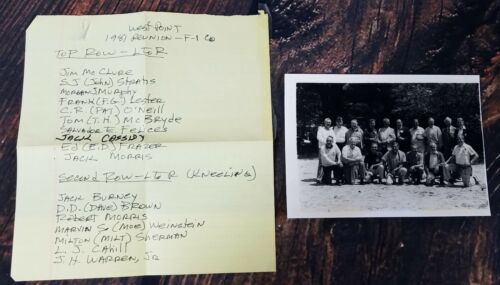 West Point
1989 Reunion - F-1 Co
Top Row - L to R
Jim McClure
S.J (John) Stratis
Morgan J Murphy
Frank (F.G.) Lester
C.R. (Pat) O'Neill
Tom (T.H.) McBryde
Salvatore E Felices
Jack Cassidy
Ed (E.D.) Frazer
Jack Morris
Second Row - L to R (Kneeling)
Jack Burney
D.D. (Dave) Brown
Robert Morris
Marvin S. (Moe) Weinstein
Milton (Milt) Sherman
L. J. Cahill
J. H. Warren, Jr